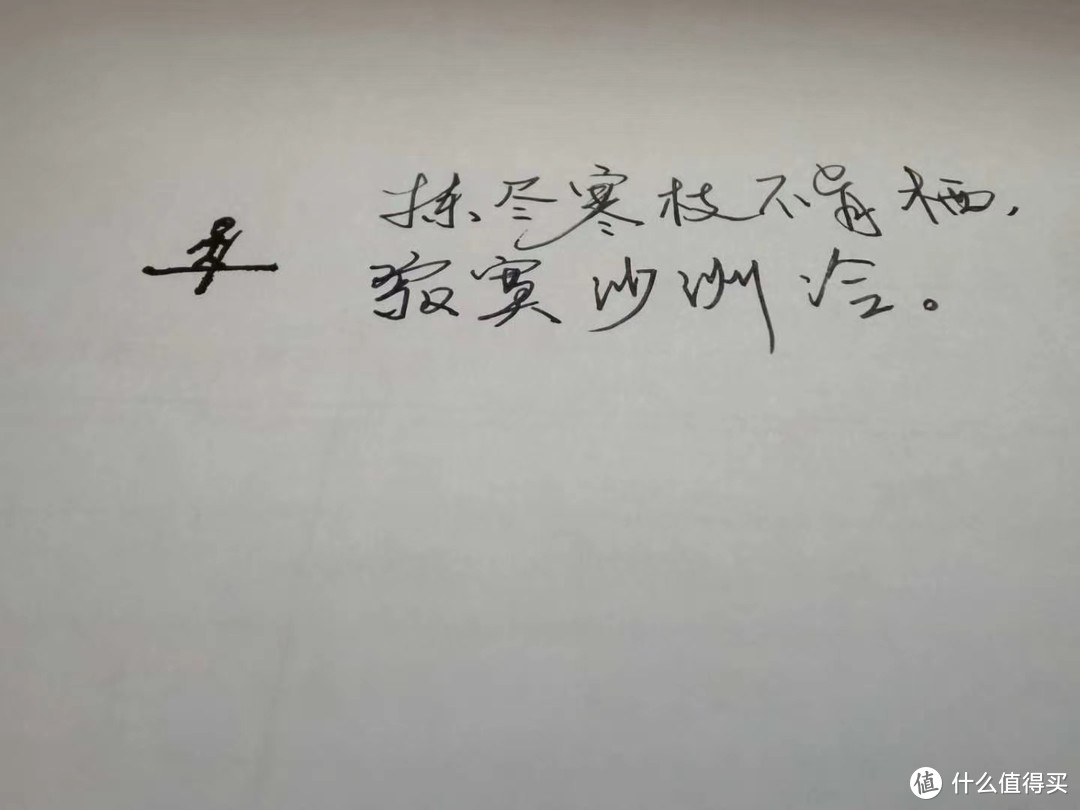 拣尽寒枝不肯栖，
寂寞沙洲冷。
值 什么值得买